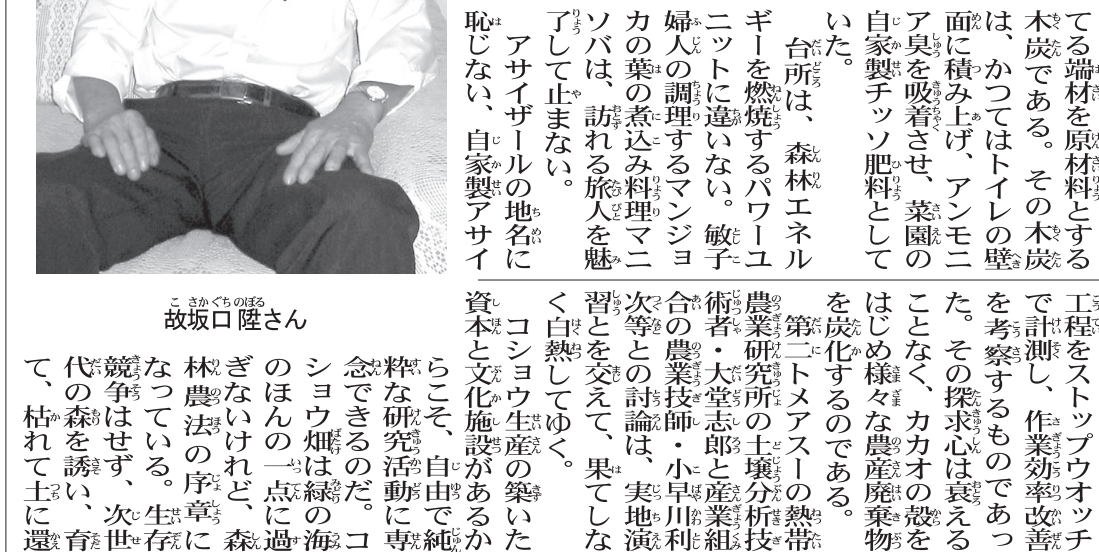 てる端材を原材料とする
木炭である。その木炭
は、かつてはトイレの壁
面に積み上げ、アンモニ
ア臭を吸着させ、菜園の
自家製チッソ肥料として
いた。
台所は、森林エネル
ギーを燃焼するパワーユ
ニットに違いない。敏子
婦人の調理するマンジョ
カの葉の煮込み料理マニ
ソバは、訪れる旅人を魅
了して止まない。
アサイザールの地名に
恥じない、自家製アサイ
工程をストップウオッチ
で計測し、作業効率改善
を考察するものであっ
た。その探求心は衰える
ことなく、カカオの殻を
はじめ様々な農産廃棄物
を炭化するのである。
第二トメアスーの熱帯
農業研究所の土壌分析技
術者・大堂志郎と産業組
合の農業技師・小早川利
次等との討論は、実地演
習とを交えて、果てしな
く白熱してゆく。
コショウ生産の築いた
資本と文化施設があるか
らこそ、自由で純
粋な研究活動に専
念できるのだ。コ
ショウ畑は緑の海
のほんの一点に過
ぎないけれど、森
林農法の序章に
なっている。生存
競争はせず、次世
代の森を誘い、育
て、枯れて土に還
故坂口陞さん